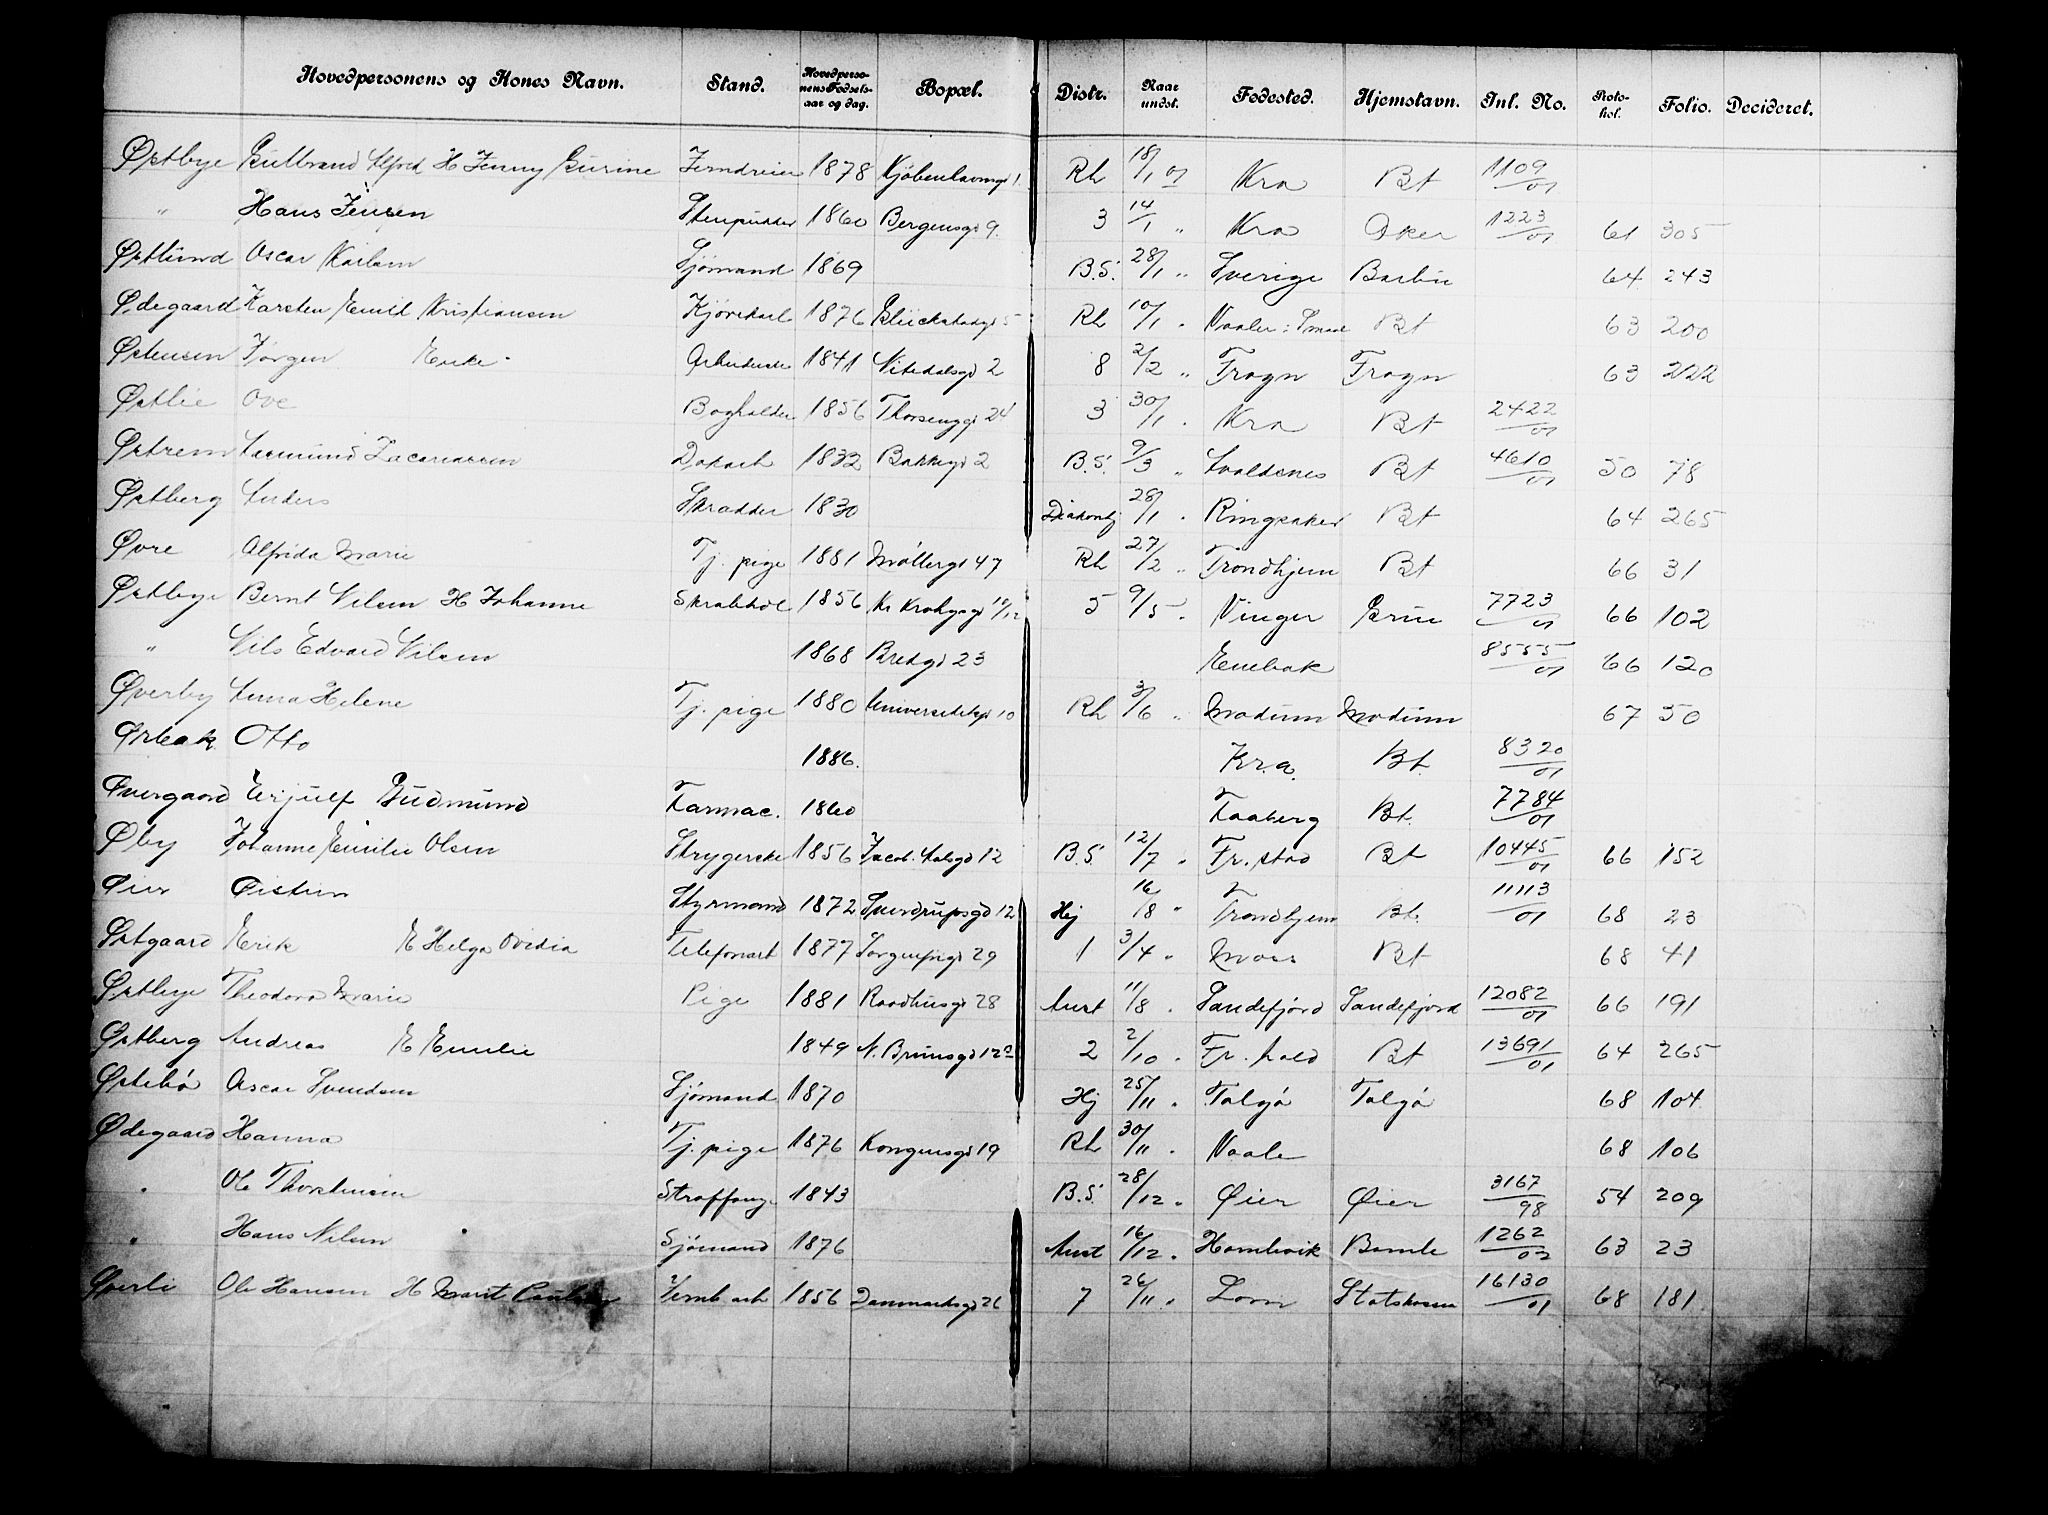 Hovedpersonens og Kones Navn. Stand. Hovedpersonens Fødselsaar og dag. Bopæl. Distr. Naar undst. Fødested. Hjemstavn. Inl. No. Protokol. Folio. Decideret.
Østbye Gulbrand Alfred H Jenny Gurine Jerndreier 1878 Kjøbenhavnsgd 1 Rh 18/1 01 Kra Bt 1109/01
" Hans Jensen 1860 Bergensgd 9. 3 14/1 " Kra Aker 1223/01 61 305
Østlund Oscar Karlsen Sjømand 1869 B.S. 28/1 " Sverige 64 243
Ødegaard Karsten Emil Kristiansen Kjørekarl 1876 Glückstadgd 5 Rh 10/1 " Vaaler i Smaal Bt 63 200
Østensen Jørgen 1841 Nitedalsgd 2 8 2/2 " Frogn Frogn 63 222
Østlie Ove Bogholder 1856 24 3 30/1 " Kra Bt 2422/01
Østrem Aasmund Zacariassen Dokarb 1832 Bakkegd 2 B.S. 9/3 " Avaldsnes Bt 4610/01 50 78
Østberg Anders Skrædder 1830 Diakonhj 28/1 " Ringsaker Bt 64 265
Øvre Alfrida Marie Tj. pige 1881 Møllergd 47 Rh 27/2 " Trondhjem Bt 66 31
Østbye Bernt Nilsen H Johanne 1856 Kr Kroghsgd 10/12 5 9/5 " Vinger Grue 7723/01 66 102
" Nils Edvard Nilsen 1868 Bredgd 23 Enebak 8555/01 66 120
Øverby Anna Helene Tj. pige 1880 Universitetsgd 10 Rh 3/6 " Modum Modum 67 50
Ørbæk Otto 1886. Kr.a. Bt. 8320/01
Øvergaard Erjulf Gudmund Farmac. 1860 Faaberg Bt. 7784/01
Øby Johanne Emilie Olsen Strygerske 1856 Jacob Aalsgd 12 B.S. 12/7 " Fr.stad Bt 10445/01 66 152
Øien Øistein Styrmand 1872 Sverdrupsgd 12 Hj 16/8 " Trondhjem Bt. 11113/01 68 23
Østgaard Erik E Helga Ovidia Telefonarb 1877 Sorgenfrigd 29 1 3/4 " Moss Bt 68 41
Østbye Theodora Marie Pige 1881 Raadhusgd 28 Aust 11/8 " Sandefjord Sandefjord 12082/01 66 191
Østberg Andreas E Emilie 1849 N. Brunsgd 12 2 2/10 " Fr. hald Bt 13691/01 64 265
Østebø Oscar Svendsen Sjømand 1870 Hj 25/11 " Talgø Talgø 68 104
Ødegaard Hanna Tj. pige 1876 Kongensgd 19 Rh 30/11 " Vaale 68 106
" Ole Thorstensen Straffange 1843 B.S. 28/12 " Øier Øier 3167/98 54 209
" Hans Nilsen Sjømand 1876 Aust 16/12 " Bamle 1262/02 63 23
Øverli Ole Hansen H Marit Jernb arb 1856 Danmarksgd 26 7 26/11 " Lom 16130/01 68 181